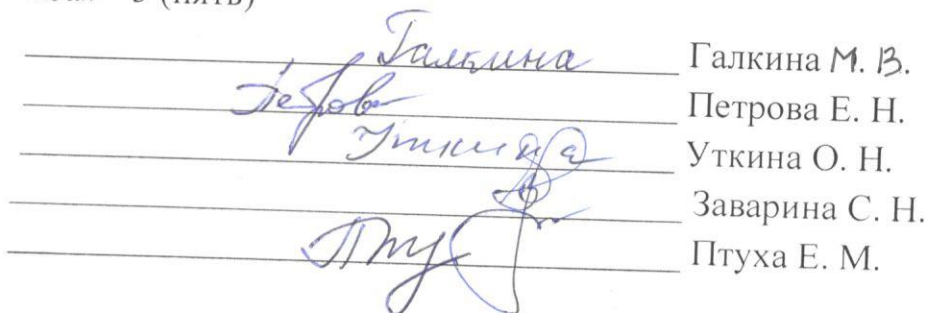 5 (пять)
Галкина Галкина М. В.
Петрова Петрова Е. Н.
Уткина Уткина О. Н.
Заварина С. Н.
Пту Птуха Е. М.